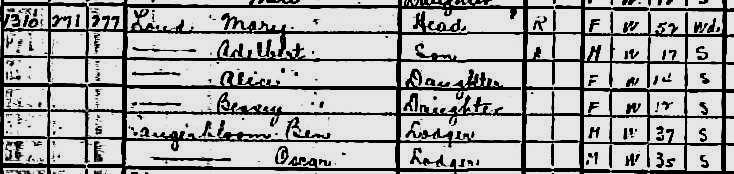 Daughter
1310 271 277 Loud Mary Head R F W 52 Wd
— Adelbert Son M W 17 S
— Alice Daughter F W 14 S
— Bessey Daughter F W 12 S
Ben Lodger M W 37 S
— Oscar Lodger M W 35 S